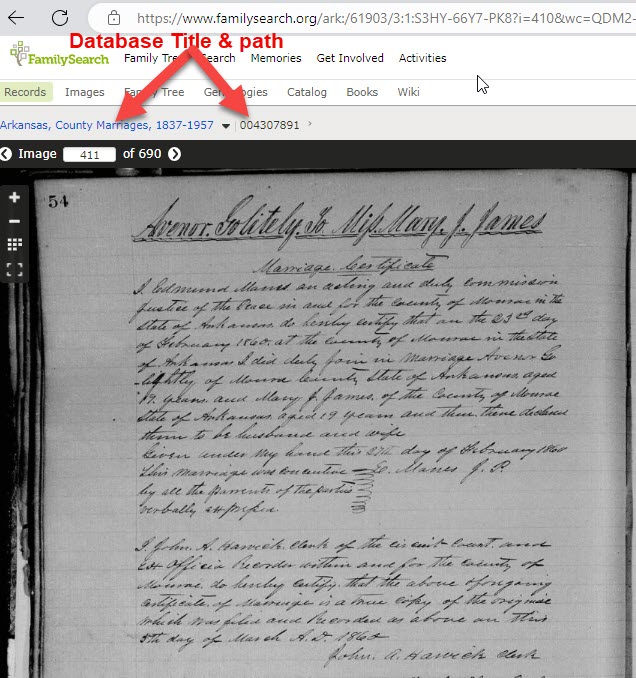 https://www.familysearch.org/ark:/61903/3:1:S3HY-66Y7-PK8?i=410&wc=QDM2-
Database Title & path
FamilySearch Family Tree Search Memories Get Involved Activities
Records Images Family Tree Genealogies Catalog Books Wiki
Arkansas, County Marriages, 1837-1957 004307891
Image 411 of 690
54
Avenor. Golitely. To Miss. Mary. J. James
Marriage. Certificate
I. Edmund Manes an acting and duly commission
Justice of the Peace in and for the County of Monroe in the
State of Arkansas do hereby certify that on the 23rd day
of February 1860. at the County of Monroe in the State
of Arkansas I did duly join in Marriage Avenor Go
lightly of Monroe County State of Arkansas aged
19. years and Mary J. James. of the County of Monroe
State of Arkansas aged 19 years and then there declared
them to be husband and wife
Given under My hand this day of February 1860
This Marriage was E. Manes J. P.
by all the Parrents of the parties
verbally
I John. A. Harvick Clerk of the circuit Court. and
Ex Officio Recorder within and for the County of
Monroe. do hereby Certify. that the above
Certificate. of Marriage is a true Copy of the
which was filed and Recorded as above on this
5th day of March A.D. 1860
John. A. Harvick Clerk